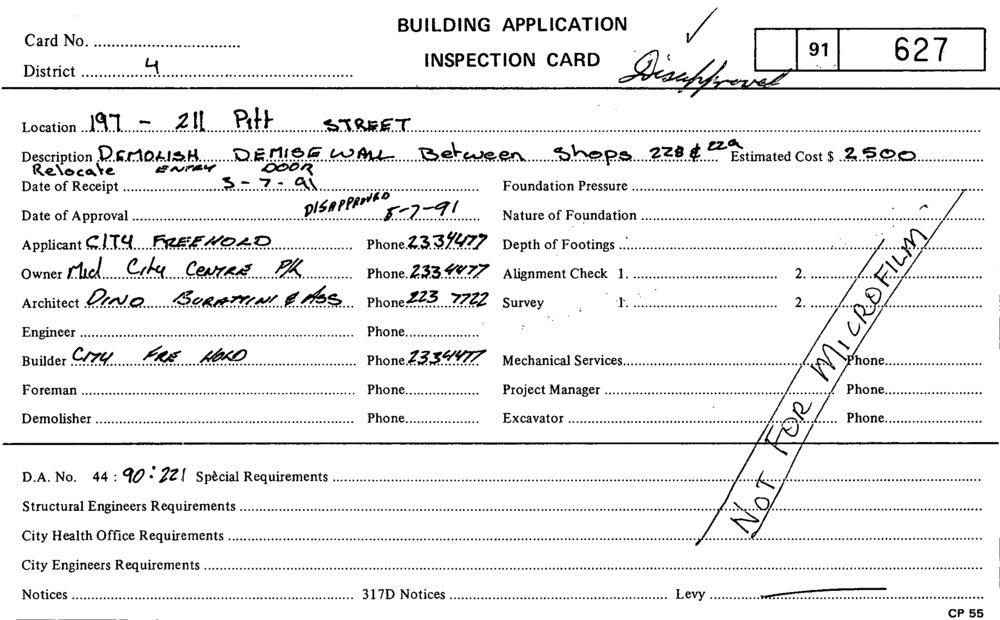 BUILDING APPLICATION
Card No. 91 627
District 4 INSPECTION CARD Disapproved
Location 197 - 211 Pitt STREET
Description DEMOLISH DEMISE WALL Between Shops 22B & 22A Estimated Cost $ 2500
Relocate ENTRY DOOR
Date of Receipt 3-7-91 Foundation Pressure
Date of Approval DISAPPROVED 5-7-91 Nature of Foundation
Applicant CITY FREEHOLD Phone 2334477 Depth of Footings
Owner Mid City CENTRE P/L Phone 2334477 Alignment Check 1. 2.
Architect DINO BURATTINI & ASS Phone 223 7722 Survey 1. 2.
Engineer Phone
Builder CITY FRE HOLD Phone 2334477 Mechanical Services Phone
Foreman Phone Project Manager Phone
Demolisher Phone Excavator Phone
NOT FOR MICROFILM
D.A. No. 44 : 90 : 221 Special Requirements
Structural Engineers Requirements
City Health Office Requirements
City Engineers Requirements
Notices 317D Notices Levy
CP 55